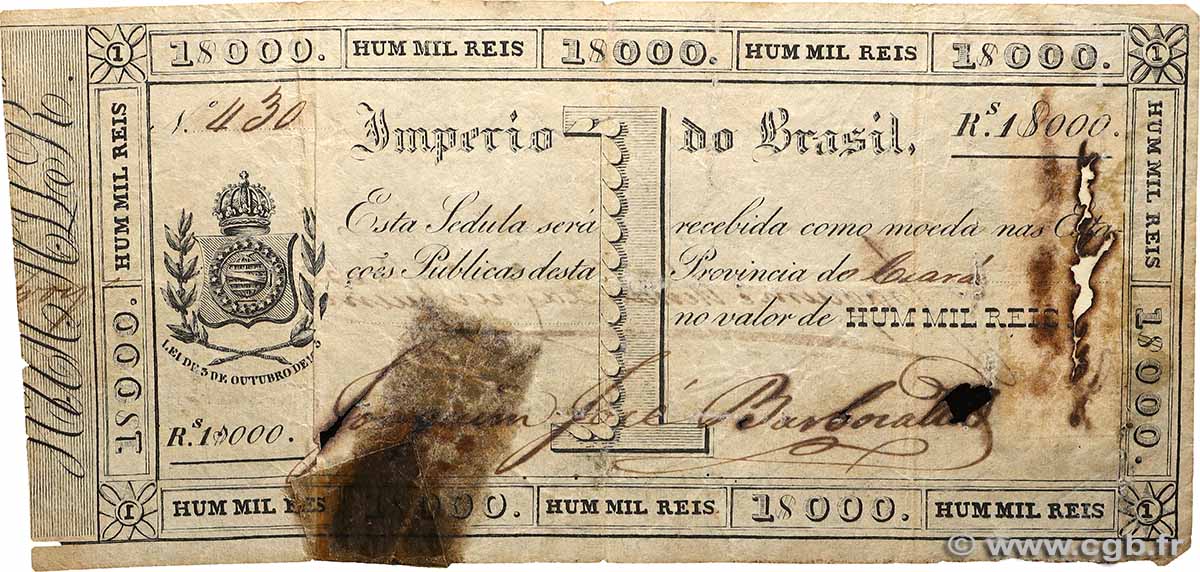 1 18000. HUM MIL REIS 18000. HUM MIL REIS 18000. 1
HUM MIL REIS
18000.
Nº 430
Imperio 1 do Brasil,
Rs. 18000.
Esta Sedula será recebida como moeda nas Esta-
ções Publicas desta Provincia do Ceará
no valor de HUM MIL REIS.
LEI DE 3 DE OUTUBRO DE
Joaquim José Barbosa
Rs. 18000.
HUM MIL REIS
18000.
1 HUM MIL REIS 18000. HUM MIL REIS 18000. HUM MIL REIS 1
© www.cgb.fr